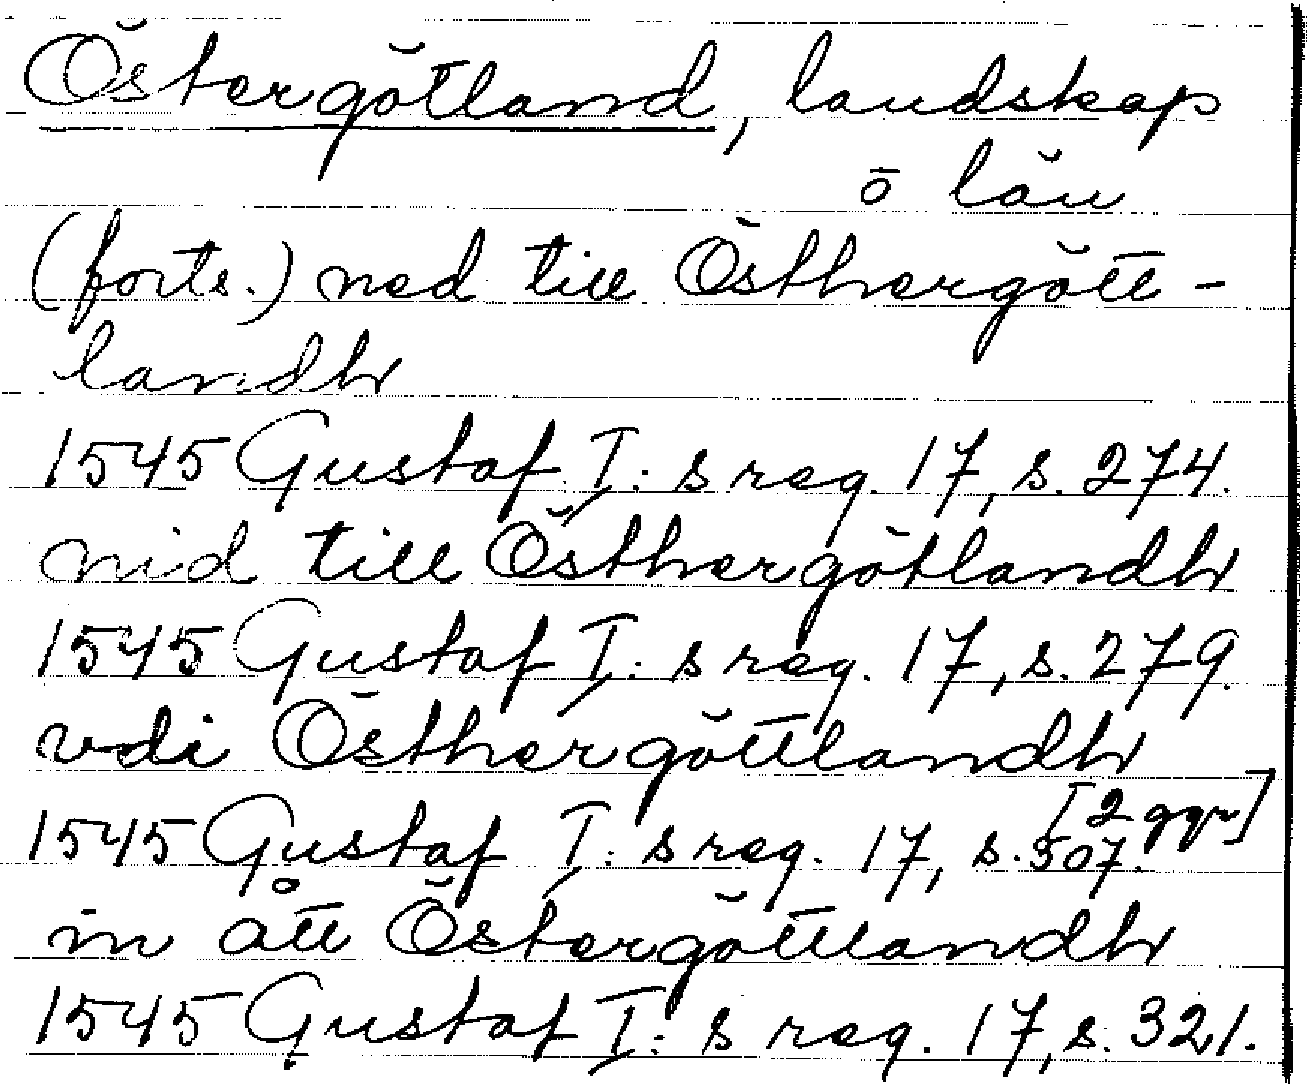 Östergötland, landskap
o län
(forts.) ned till Östhergött-
landh
1545 Gustaf I:s reg. 17, s. 274.
nid till Östhergötlandh
1545 Gustaf I:s reg. 17, s. 279.
vdiÖsthergöttlandh
[2 ggr]
1545 Gustaf I:s reg. 17, s. 507.
in ått Östergöttlandh
1545 Gustaf I:s reg. 17, s. 321.